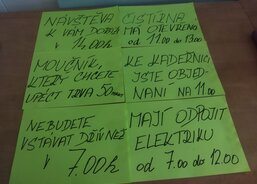 NÁVŠTĚVA
K VÁM DORAZÍ
V 14.00 h
ČISTÍRNA
MÁ OTEVŘENO
od 11.00 do 13.00
MOUČNÍK,
KTERÝ CHCETE
UPÉCT TRVÁ 50 minut
KE KADEŘNICI
JSTE OBJED-
NANI NA 11.00
NEBUDETE
VSTÁVAT DŘÍV NEŽ
V 7.00 h
MAJÍ ODPOJIT
ELEKTRIKU
od 7.00 do 12.00